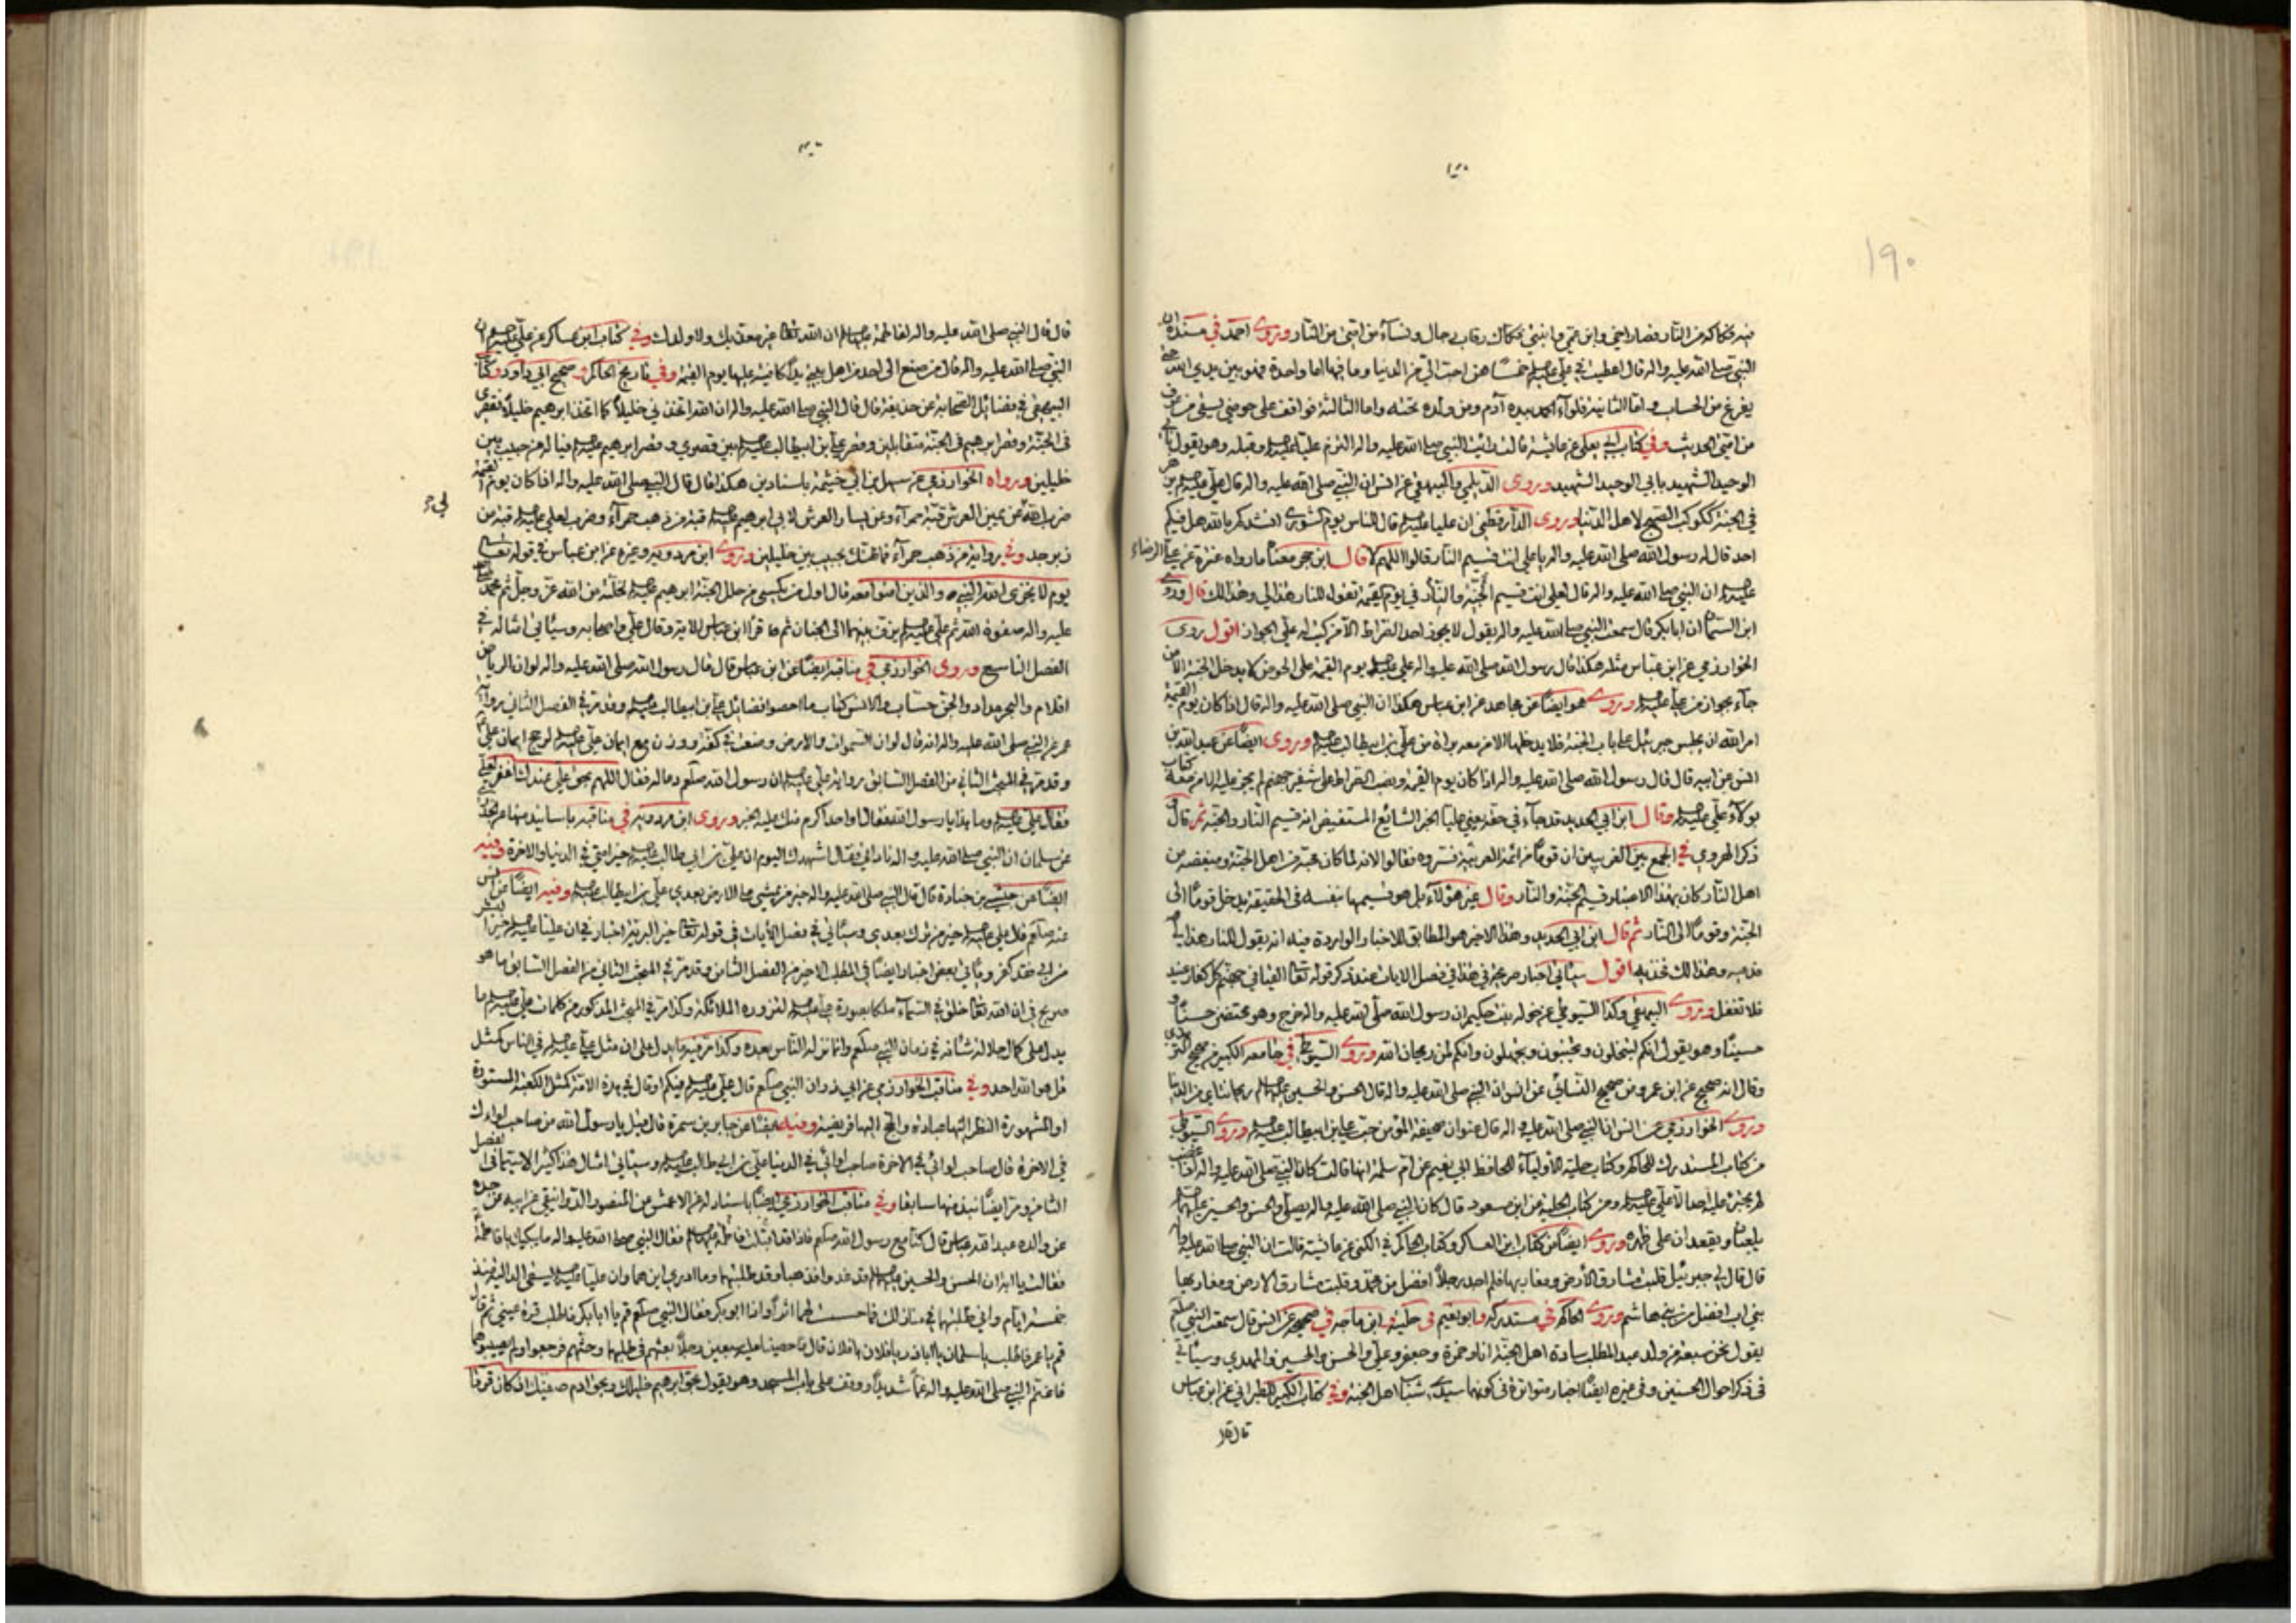 ١٩٠
فيه فكاكه من النار فصار اخي وابن عمي وابنتي فكاك رقاب رجال ونساء من امتي من النار وروى احمد في مسنده ان
النبي صلى الله عليه واله قال اعطيت في علي خمسا هن احب الي من الدنيا وما فيها اما واحدة فهو بين يدي الله حتى
يفرغ من الحساب واما الثانية فلواء الحمد بيده آدم ومن ولده تحته واما الثالثة فواقف على حوضي يسقي من عرف
من امتي الحديث وفي كتاب ابي يعلى عن عائشة قالت رايت النبي صلى الله عليه واله التزم عليا وقبله وهو يقول بابي
الوحيد الشهيد بابي الوحيد الشهيد وروى الديلمي والبيهقي عن انس ان النبي صلى الله عليه واله قال علي يزهر
في الجنة ككوكب الصبح لاهل الدنيا وروى الدارقطني ان عليا قال للناس يوم الشورى انشدكم بالله هل فيكم
احد قال له رسول الله صلى الله عليه واله يا علي انت قسيم النار قالوا اللهم لا قال ابن حجر معناه ما رواه عنترة عن علي الرضاء
ان النبي صلى الله عليه واله قال لعلي انت قسيم الجنة والنار في يوم القيمة تقول للنار هذا لي وهذا لك قال وروى
ابن السماك ان ابا بكر قال سمعت النبي صلى الله عليه واله يقول لا يجوز احد الصراط الا من كتب له علي الجواز اقول روى
الخوارزمي عن ابن عباس مثله هكذا قال رسول الله صلى الله عليه واله علي يوم القيمة على الحوض لا يدخل الجنة الا من
جاء بجواز من علي وروى هو ايضا عن مجاهد عن ابن عباس هكذا ان النبي صلى الله عليه واله قال اذا كان يوم القيمة
امر الله ان يجلس جبرئيل على باب الجنة فلا يدخلها الا من معه براة من علي بن ابيطالب وروى ايضا عن عبد الله بن
انس عن ابيه قال قال رسول الله صلى الله عليه واله اذا كان يوم القيمة ونصب الصراط على شفير جهنم لم يجز عليه الا من معه كتاب
بولاء علي وقال ابن ابي الحديد قد جاء في حقه يعني عليا الخبر الشائع المستفيض انه قسيم النار والجنة ثم قال
ذكر الهروي في الجمع بين الغريبين ان قوما من ائمة العربية فسروه فقالوا لانه لما كان محبه من اهل الجنة ومبغضه من
اهل النار كان بهذا الاعتبار قسيم الجنة والنار وقال غير هؤلاء بل هو قسيمها بنفسه في الحقيقة يدخل قوما الى
الجنة وقوما الى النار ثم قال ابن ابي الحديد وهذا الاخير هو المطابق للاخبار الواردة فيه انه يقول للنار هذا لي
فدعيه وهذا لك فخذيه اقول سيأتي اخبار صريحة في هذا في فصل الايات عند ذكر قوله تعالى القيا في جهنم كل كفار عنيد
فلا تغفل وروى البيهقي وكذا السيوطي عن خولة بنت حكيم ان رسول الله صلى الله عليه واله خرج وهو محتضن حسنا و
حسينا وهو يقول انكم لتبخلون وتجبنون وتجهلون وانكم لمن ريحان الله وروى السيوطي في جامعه الكبير من صحيح الترمذي
وقال انه صحيح عن ابن عمر ومن صحيح النسائي عن انس ان النبي صلى الله عليه واله قال الحسن والحسين ريحانتاي من الدنيا
وروى الخوارزمي عن انس ان النبي صلى الله عليه واله قال عنوان صحيفة المؤمن حب علي بن ابيطالب وروى السيوطي
من كتاب المستدرك للحاكم وكتاب حلية الاولياء للحافظ ابي نعيم عن ام سلمة انها قالت كان النبي صلى الله عليه واله اذا غضب
لم يجترء عليه احد الا علي ومن كتاب الحلية عن ابن مسعود قال كان النبي صلى الله عليه واله يصلي والحسن والحسين
يلعبان ويقعدان على ظهره وروى ايضا من كتاب ابن العساكر وكتاب الحاكم في الكنى عن عائشة قالت ان النبي صلى الله عليه واله
قال قال لي جبرئيل قلبت مشارق الأرض ومغاربها فلم اجد رجلا افضل من محمد وقلبت مشارق الارض ومغاربها فلم اجد
بني اب افضل من بني هاشم وروى الحاكم في مستدركه وابو نعيم في حلية وابن ماجه في صحيحه عن انس قال سمعت النبي صلعم
يقول نحن سبعة من ولد عبد المطلب سادة اهل الجنة انا وحمزة وجعفر وعلي والحسن والحسين والمهدي وسيأتي
في ذكر احوال الحسنين وفي غيره ايضا اخبار متواترة في كونهما سيدي شباب اهل الجنة وفي كتاب الكبير للطبراني عن ابن عباس
قال قال
قال قال النبي صلى الله عليه واله لفاطمة ان الله تعالى غير معذبك ولا ولدك وفي كتاب ابن عساكر عن علي ان
النبي صلى الله عليه واله قال من صنع الى احد من اهل بيتي يدا كافيته عليها يوم القيمة وفي تاريخ الحاكم وصحيح ابي داود وكتاب
البيهقي في فضائل الصحابة عن حذيفة قال قال النبي صلى الله عليه واله ان الله اتخذني خليلا كما اتخذ ابرهيم خليلا فقصري
في الجنة وقصر ابرهيم في الجنة متقابلين وقصر علي بن ابيطالب بين قصري وقصر ابرهيم فيا له من حبيب بين
خليلين ورواه الخوارزمي عن سهل بن ابي خيثمة باسنادين هكذا قال قال النبي صلى الله عليه واله اذا كان يوم القيمة
ضرب الله عن يمين العرش قبة حمراء وعن يسار العرش لابي ابرهيم قبة من ذهب حمراء وضرب لعلي قبة من
زبرجد وفي رواية من ذهب حمراء فما ظنك بحبيب بين خليلين وروى ابن مردويه وغيره عن ابن عباس في قوله تعالى
يوم لا يخزي الله النبي والذين امنوا معه قال اول من يكسى من حلل الجنة ابرهيم لخلته من الله عز وجل ثم محمد
عليه واله صفوة الله ثم علي يزف بينهما الى الجنان ثم قرأ ابن عباس الاية وقال علي واصحابه وسيأتي امثاله في
الفصل التاسع وروى الخوارزمي في مناقبه ايضا عن ابن عباس قال قال رسول الله صلى الله عليه واله لو ان الرياض
اقلام والبحر مداد والجن حساب والانس كتاب ما احصوا فضائل علي بن ابيطالب وقد مر في الفصل الثاني رواية
عمر عن النبي صلى الله عليه واله انه قال لو ان السموات والارض وضعت في كفة ووزن مع ايمان علي لرجح ايمان علي
وقد مر في المبحث الثاني من الفصل السابق رواية علي ان رسول الله صلعم دعا له فقال اللهم بحق علي عندك اغفر لعلي
فقال علي وما هذا يا رسول الله فقال او احد اكرم منك عليه الخبر وروى ابن مردويه في مناقبه باسانيد منها عن
عن سلمان ان النبي صلى الله عليه واله ناداني فقال اشهدك اليوم ان علي بن ابي طالب خير امتي في الدنيا والاخرة وفيه
ايضا عن حبشي بن جنادة قال قال النبي صلى الله عليه واله خير من يمشي على الارض بعدي علي بن ابيطالب وفيه ايضا عن انس
عنه صلعم قال علي خير من اترك بعدي وسيأتي في فصل الأيات في قوله تعالى خير البرية اخبار في ان عليا خير البشر
من ابى فقد كفر ويأتي بعض اخبار ايضا في المطلب الاخير من الفصل الثامن وقد مر في المبحث الثاني من الفصل السابق ما هو
صريح في ان الله تعالى خلق في السماء ملكا بصورة علي لتزوره الملائكة وكذا مر في المبحث المذكور من كلمات علي ما
يدل على كمال جلالة شانه في زمان النبي صلعم وانما نزله الناس بعده وكذا مر فيه ما يدل على ان مثل علي في الناس كمثل
قل هو الله احد وفي مناقب الخوارزمي عن ابي ذر ان النبي صلعم قال علي فيكم او قال في هذه الامة كمثل الكعبة المستورة
او المشهورة النظر اليها عبادة والحج اليها فريضة وفيه ايضا عن جابر بن سمرة قال قيل يا رسول الله من صاحب لواءك
في الاخرة قال صاحب لوائي في الاخرة صاحب لوائي في الدنيا علي بن ابي طالب وسيأتي امثال هذا كثيرا لا سيما في الفصل
الثامن ومر ايضا نبذ منها سابقا وفي مناقب الخوارزمي ايضا باسناد له عن الاعمش عن المنصور الدوانيقي عن ابيه عن جده
عن والده عبد الله بن عباس قال كنا مع رسول الله صلعم فاذا قد اقبلت فاطمة فقال النبي صلى الله عليه واله ما يبكيك يا فاطمة
فقالت يا ابه ان الحسن والحسين قد غدوا فذهبا وقد طلبتهما وما ادري اين هما وان عليا يسقي الدالية منذ
خمسة ايام واني طلبتهما في منازلك فما حسست لهما اثرا واذا ابو بكر فقال النبي صلعم قم يا ابابكر فاطلب قرة عيني ثم قال
قم يا عمر فاطلب يا سلمان يا اباذر يا فلان يا فلان قال فاحصينا عليه سبعين رجلا بعثهم في طلبهما وحثهم فرجعوا ولم يصيبوهما
فاغتم النبي صلى الله عليه واله غما شديدا ووقف على باب المسجد وهو يقول بحق ابرهيم خليلك وبحق ادم صفيك ان كان قرتا